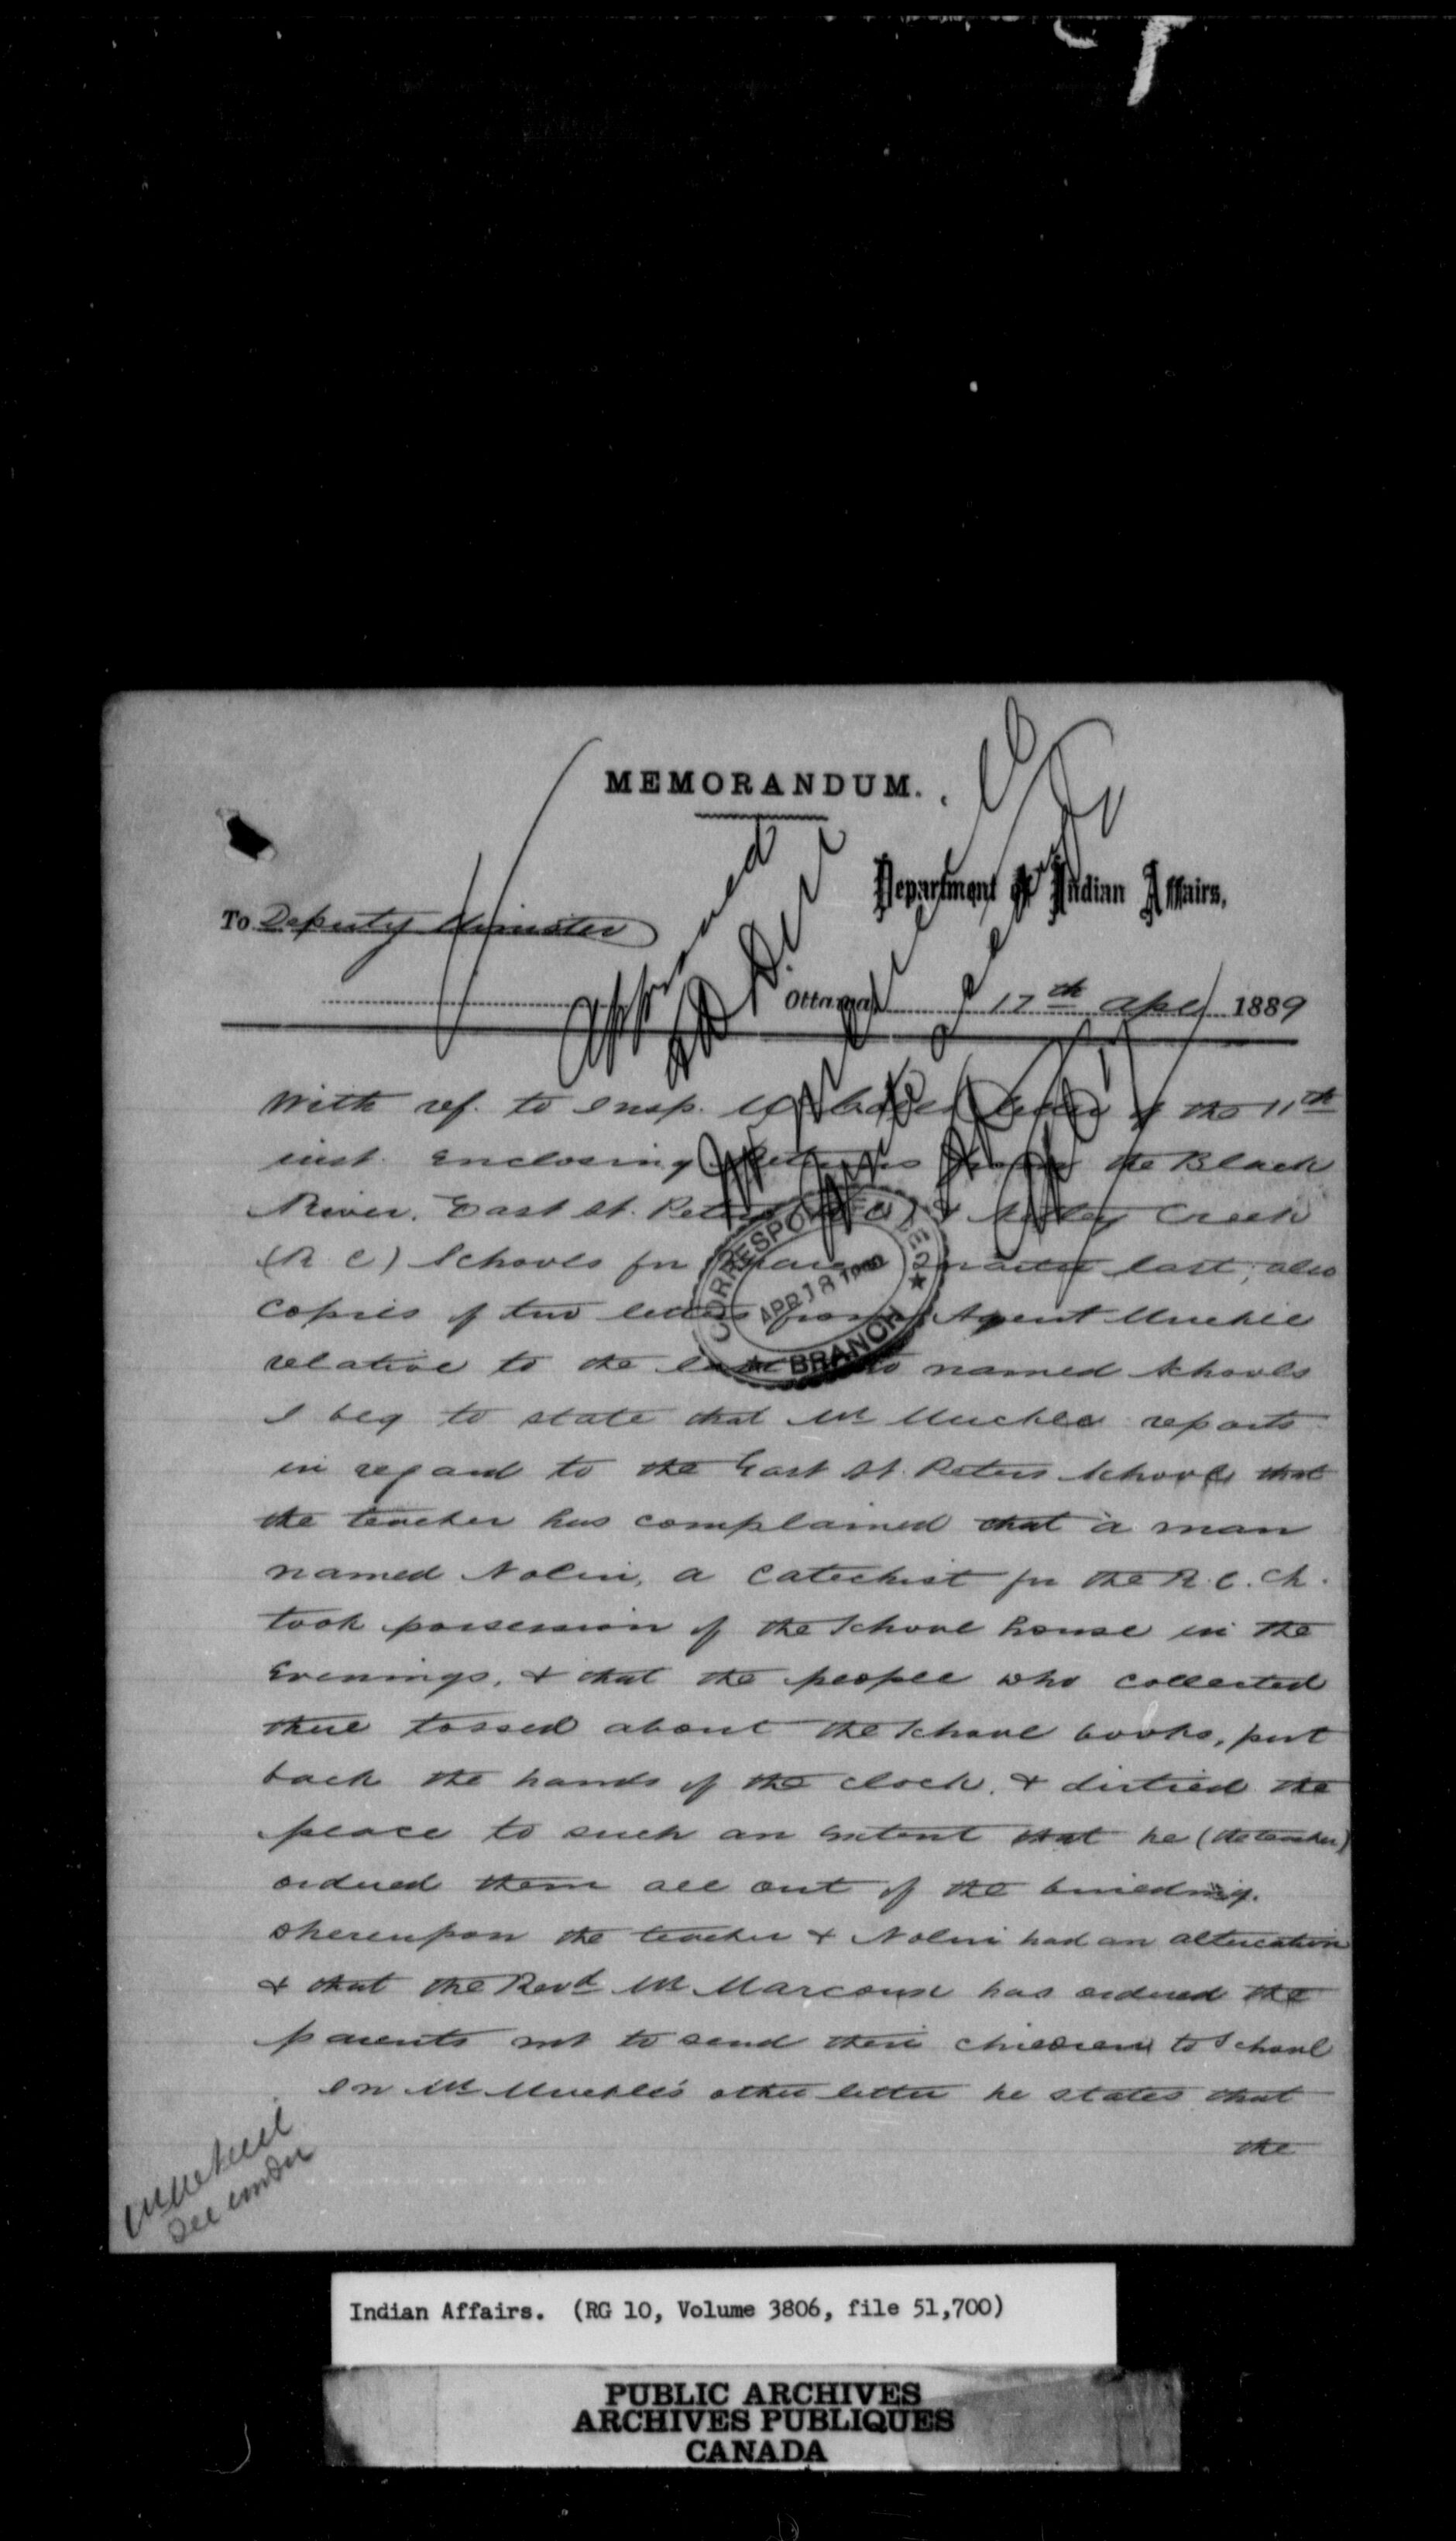 MEMORANDUM.
Department of Indian Affairs,
To Deputy Minister
Approved
Ottawa, 17th Apl 1889
With ref. to Insp. letter of the 11th
inst. enclosing Returns from the Black
River, East St. Peters (R C) & Netley Creek
(R. C) Schools for March Quarter last, also
copies of two letters from Agent Muckle
relative to the last two named Schools
I beg to state that Mr Muckle reports
in regard to the East St. Peters School that
the teacher has complained that a man
named Nolin, a Catechist for the R. C. Ch.
took possession of the School house in the
Evenings, & that the people who collected
there tossed about the School books, put
back the hands of the clock, & dirtied the
place to such an extent that he (the teacher)
ordered them all out of the building.
Whereupon the teacher & Nolin had an altercation
& that the Revd Mr Marcoux has ordered the
parents not to send their children to School
In Mr Muckle's other letter he states that
the
CORRESPONDENCE
APR 18
BRANCH
See under
Indian Affairs. (RG 10, Volume 3806, file 51,700)
PUBLIC ARCHIVES
ARCHIVES PUBLIQUES
CANADA